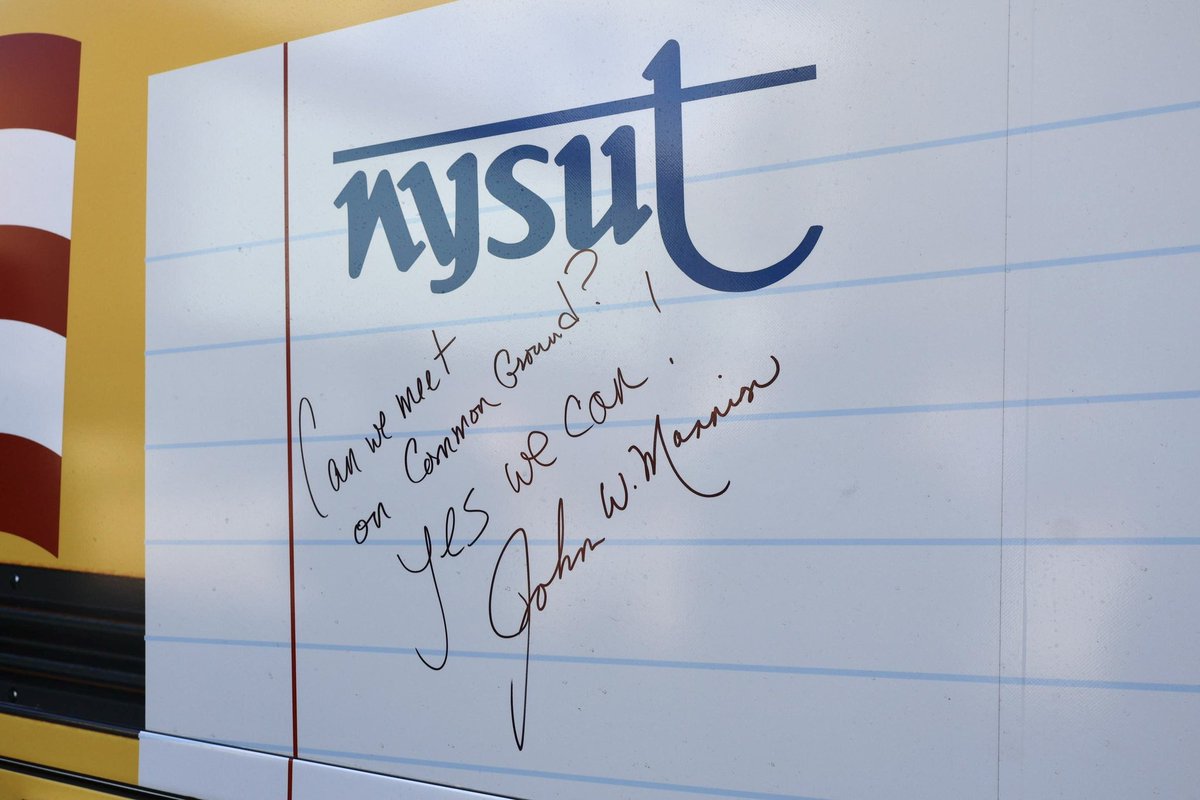 nysut
Can we meet
on Common Ground?
Yes we can!
John W. Mannion